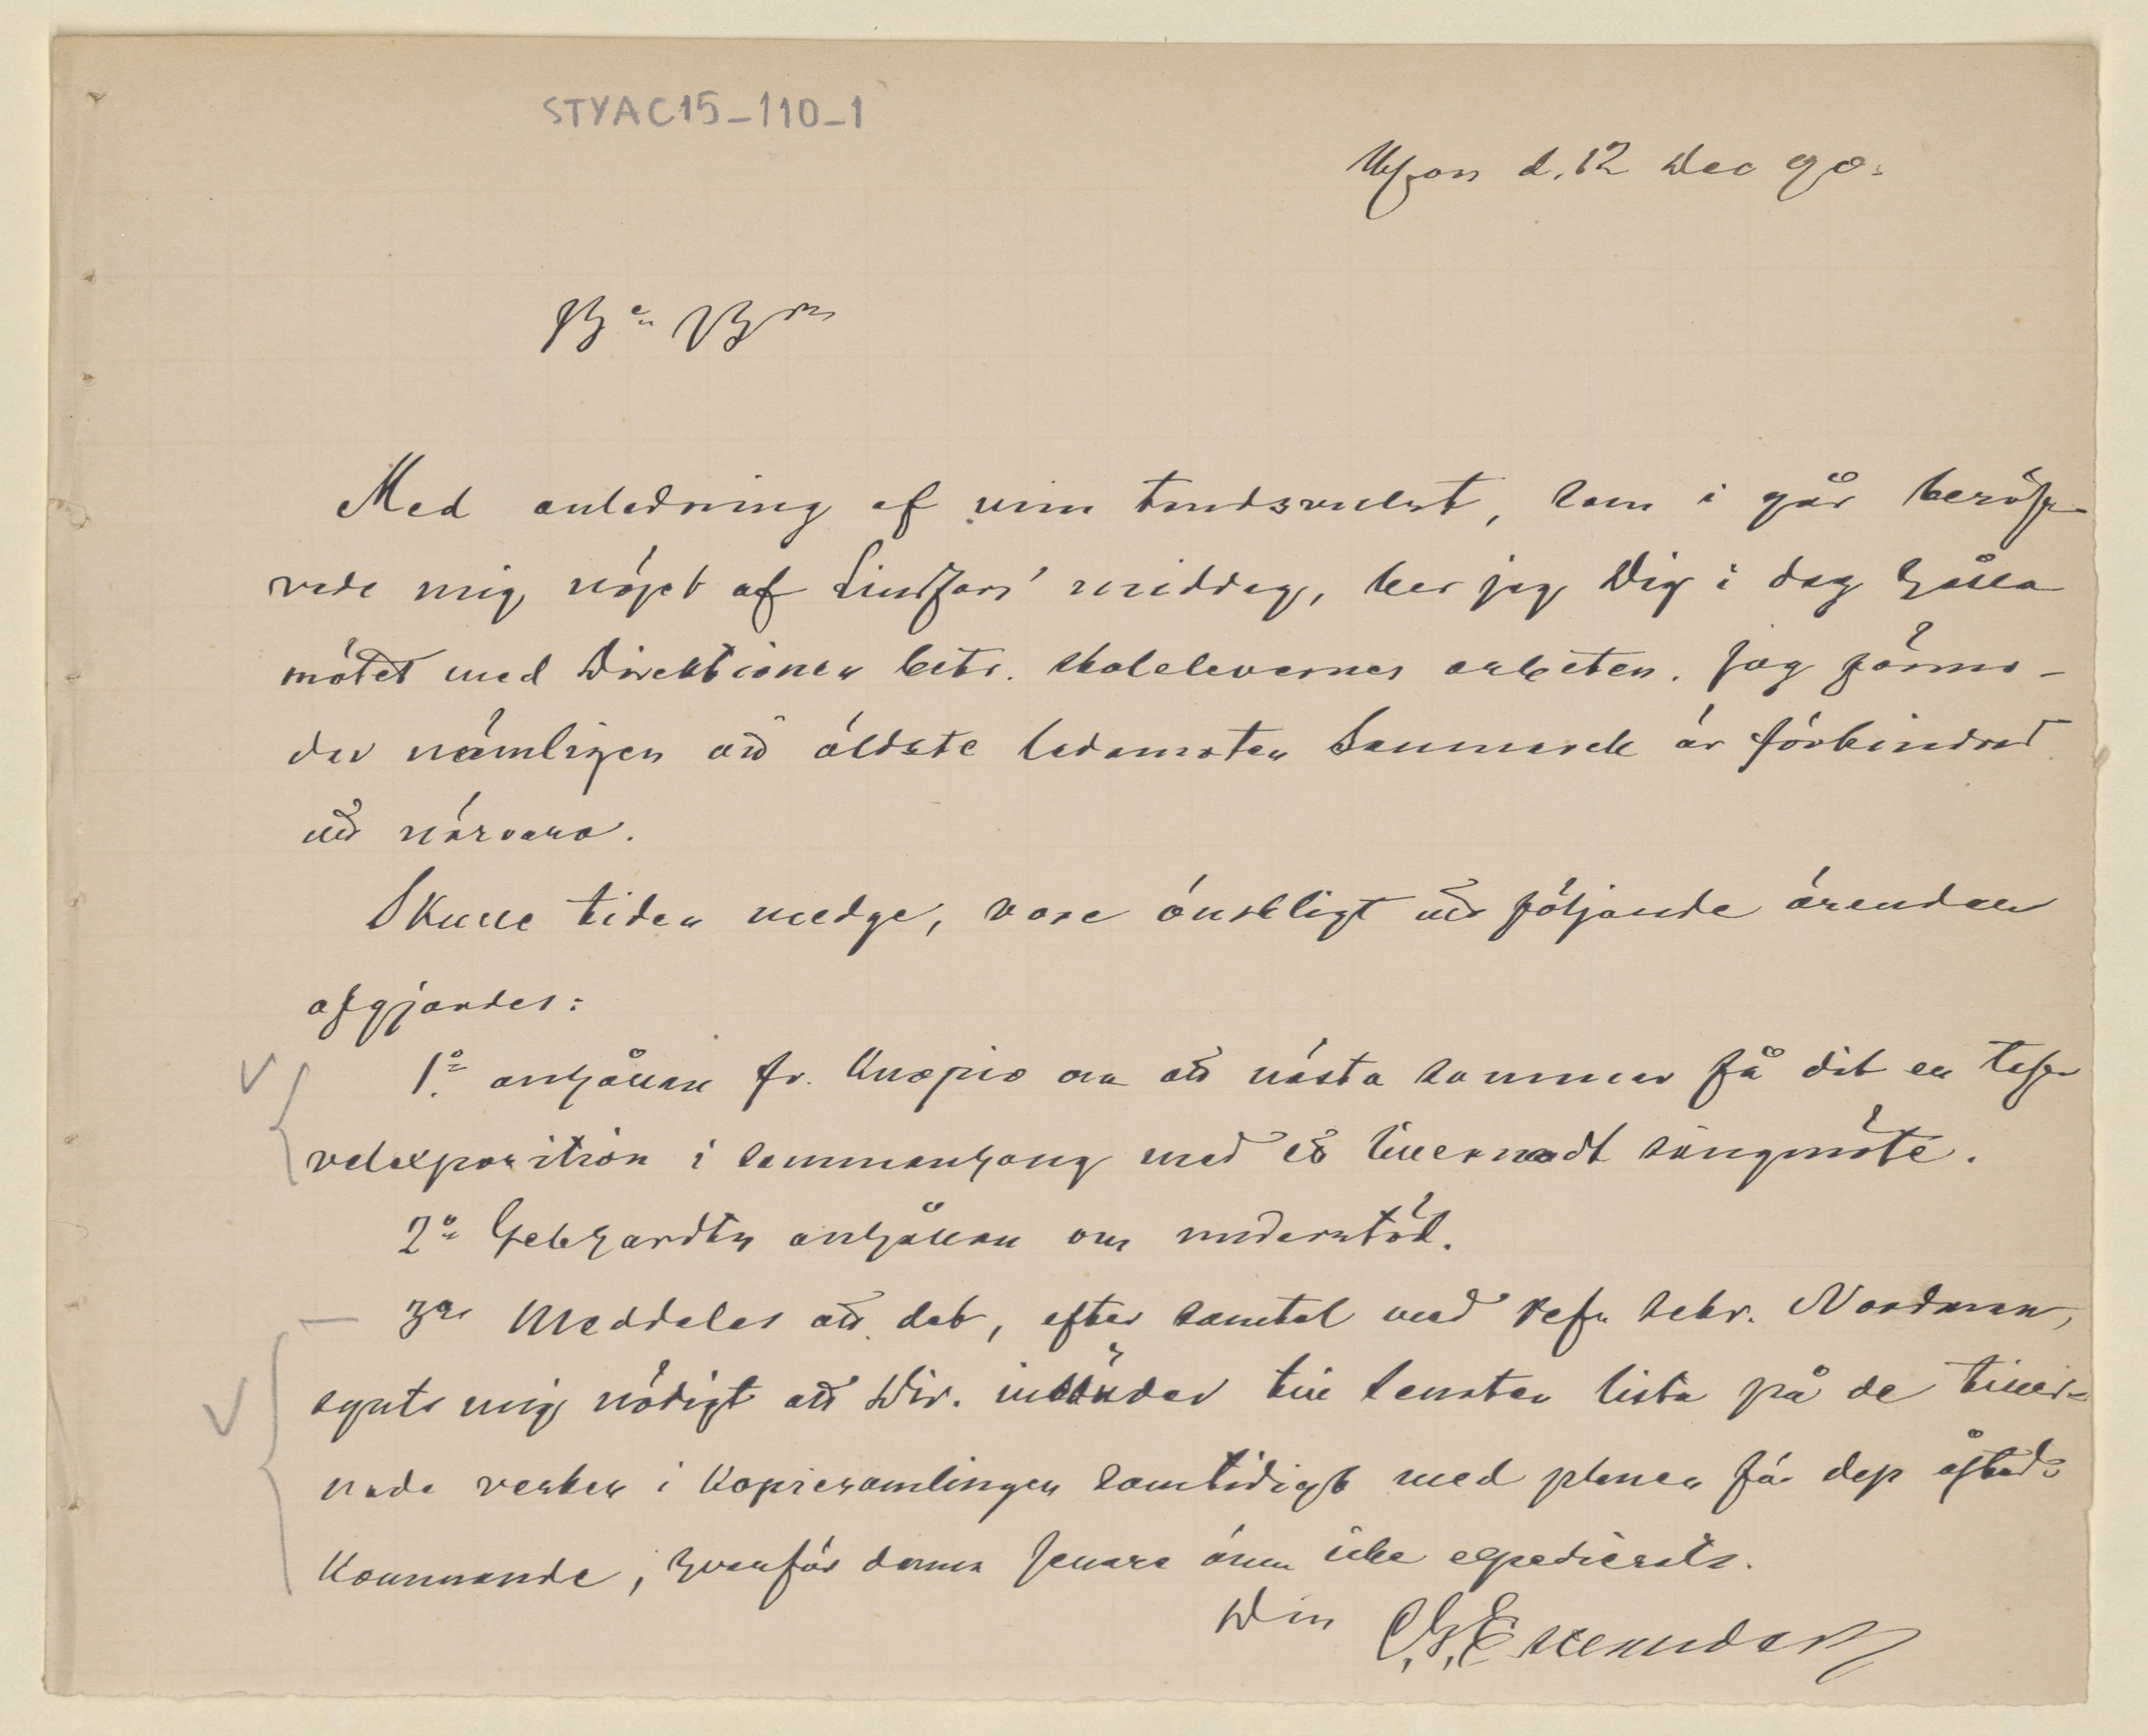 STYAC15-110-1
Hfors d. 12 Dec 90.
Med anledning af min tandsvulst, som i går beröf-
vade mig nöjet af Lindfors' middag, ber jag Dig i dag hålla
mötet med Direktionen betr. skolelevernes arbeten. Jag förmo-
dar nämligen att äldste ledamoten Sanmark är förhindrad
att närvara.
Skulle tiden medge, vore önskligt att följande ärenden
afgjordes:
1o anhållan fr. Kuopio om att nästa sommar få dit en taf-
velexposition i sammanhang med ett tillernadt sångmöte.
2o Gebhardts anhållan om understöd.
– 3o Meddelas att det, efter samtal med ref. sekr. Nordman,
synts mig nödigt att Dir. insänder till senaten lista på de tiller-
nade verken i Kopiesamlingen samtidigt med planen för dess åstad-
kommande, hvarför denna senare ännu icke expedierats.
Din C.G.Estlander